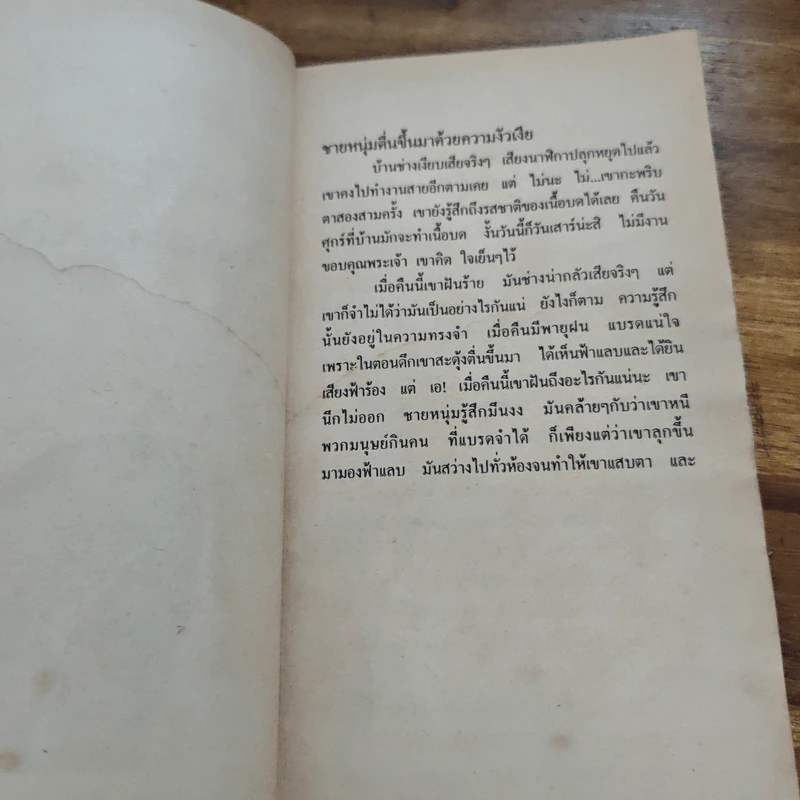 ชายหนุ่มตื่นขึ้นมาด้วยความงัวเงีย
บ้านช่างเงียบเสียจริงๆ เสียงนาฬิกาปลุกหยุดไปแล้ว
เขาคงไปทำงานสายอีกตามเคย แต่ ไม่นะ ไม่...เขากะพริบ
ตาสองสามครั้ง เขายังรู้สึกถึงรสชาติของเนื้อบดได้เลย คืนวัน
ศุกร์ที่บ้านมักจะทำเนื้อบด งั้นวันนี้ก็วันเสาร์น่ะสิ ไม่มีงาน
ขอบคุณพระเจ้า เขาคิด ใจเย็นๆไว้
เมื่อคืนนี้เขาฝันร้าย มันช่างน่ากลัวเสียจริงๆ แต่
เขาก็จำไม่ได้ว่ามันเป็นอย่างไรกันแน่ ยังไงก็ตาม ความรู้สึก
นั้นยังอยู่ในความทรงจำ เมื่อคืนมีพายุฝน แบรดแน่ใจ
เพราะในตอนดึกเขาสะดุ้งตื่นขึ้นมา ได้เห็นฟ้าแลบและได้ยิน
เสียงฟ้าร้อง แต่ เอ! เมื่อคืนนี้เขาฝันถึงอะไรกันแน่นะ เขา
นึกไม่ออก ชายหนุ่มรู้สึกมึนงง มันคล้ายๆกับว่าเขาหนี
พวกมนุษย์กินคน ที่แบรดจำได้ ก็เพียงแต่ว่าเขาลุกขึ้น
มามองฟ้าแลบ มันสว่างไปทั่วห้องจนทำให้เขาแสบตา และ